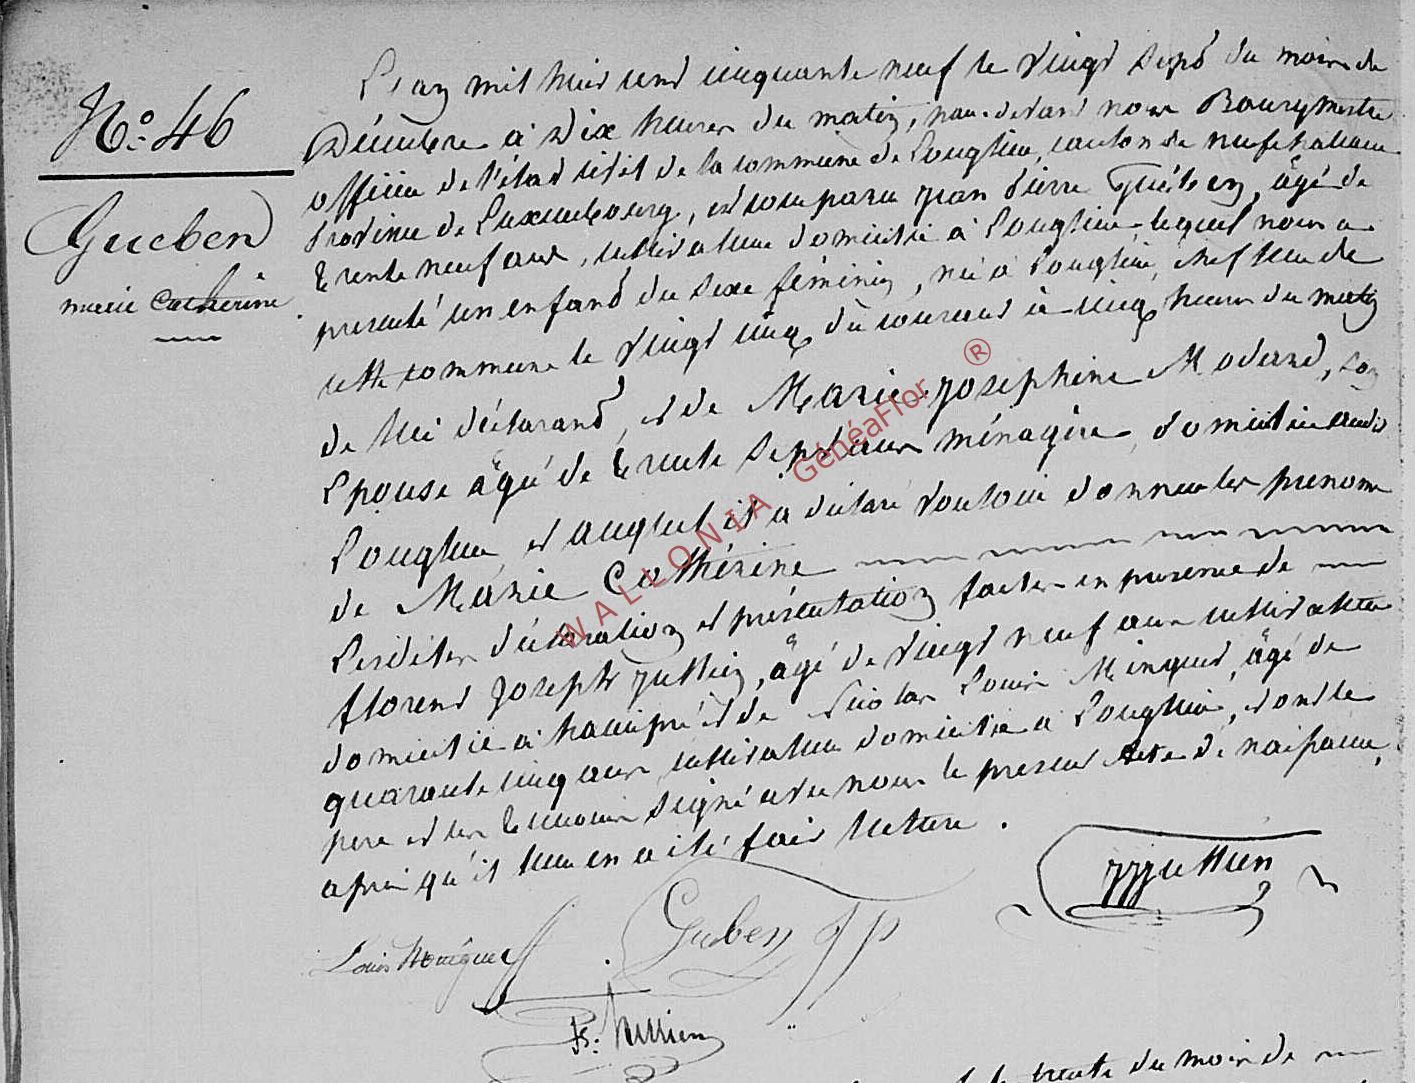 N.o 46
Gueben
marie Catherine
L'an mil huit cent cinquante neuf le vingt sept du mois de
Décembre à Dix heures du matin, par devant nous Bourgmestre
officier de l'état civil de la commune de Longlier, canton de neufchateau
province de Luxembourg, est comparu jean Pierre Guében, âgé de
trente neuf ans, cultivateur domicilié à Longlier lequel nous a
presenté un enfant du sexe féminin, né à Longlier, chef lieu de
cette commune le vingt cinq du courant à cinq heures du matin
de lui déclarant, et de Marie josephine Modard, son
Epouse âgé de trente sept ans ménagère, domicilié audit
Longlier, et auquel il a déclaré vouloir donner les prenoms
de Marie Cathérine
Lesdites déclaration et présentation faites en presence de
florent Joseph jullien, âgé de vingt neuf ans cultivateur
domicilié à hamipré et de Nicolas Louis Minguet, âgé de
quarante cinq ans, cultivateur domicilié à Longlier, dont le
pere et les temoins signé avec nous le present Acte de naissance,
après qu'il leur en a été fait lecture.
jjjullien
Gueben J P
Louis Minguet
WALLONIA GénéaFlor ®
le trente du mois de